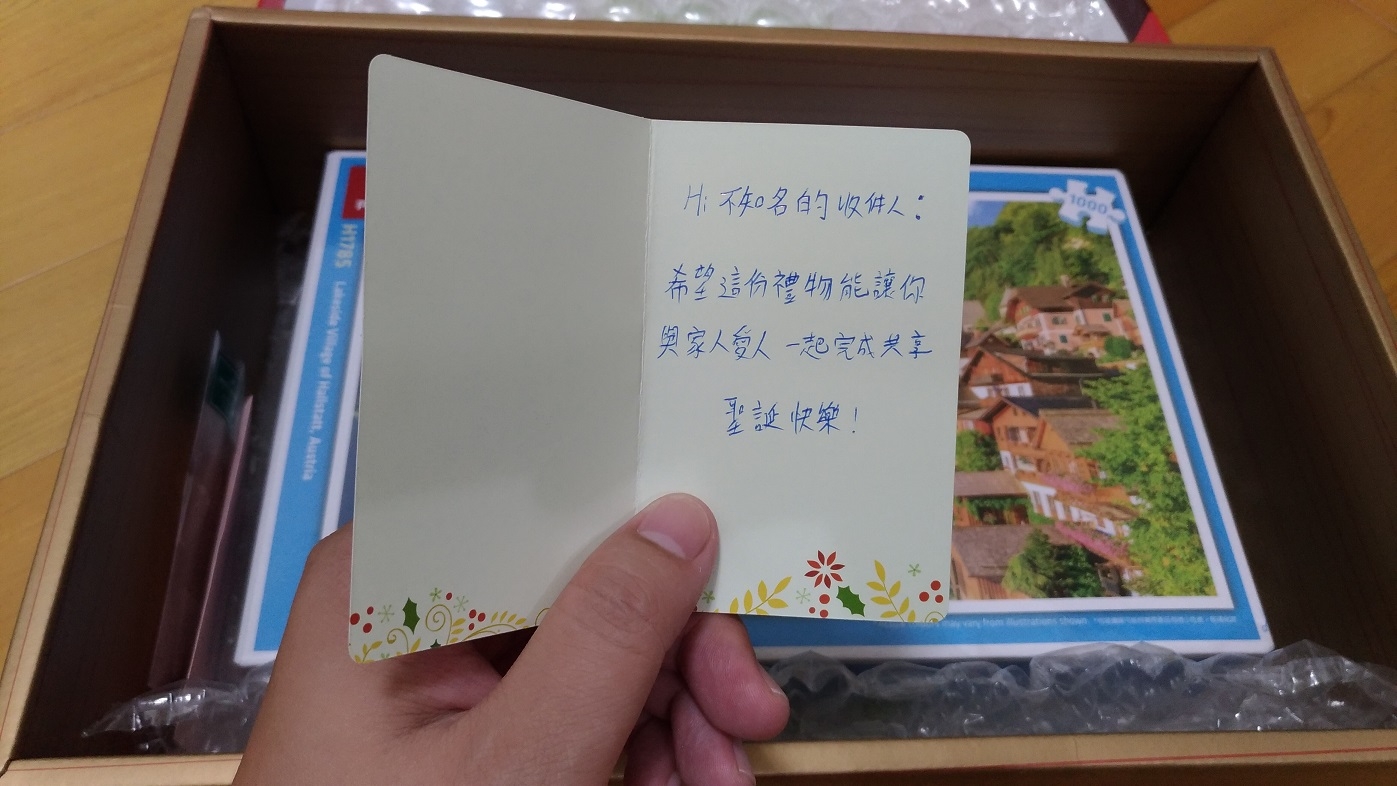 Hi 不知名的收件人：
希望這份禮物能讓你
與家人愛人一起完成共享
聖誕快樂！
1000
H1785 Lakeside Village of Hallstatt, Austria
may vary from illustrations shown